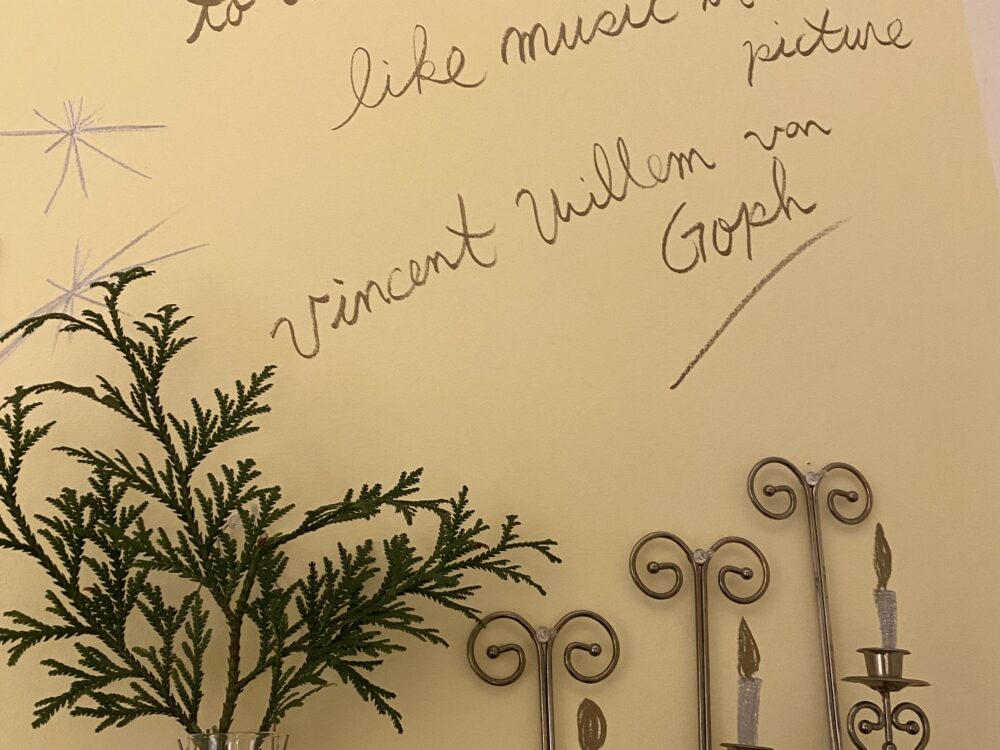 to
like music
picture
Vincent Willem van
Goph